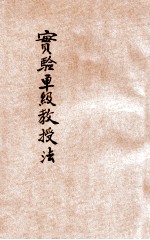 實驗單級教授法